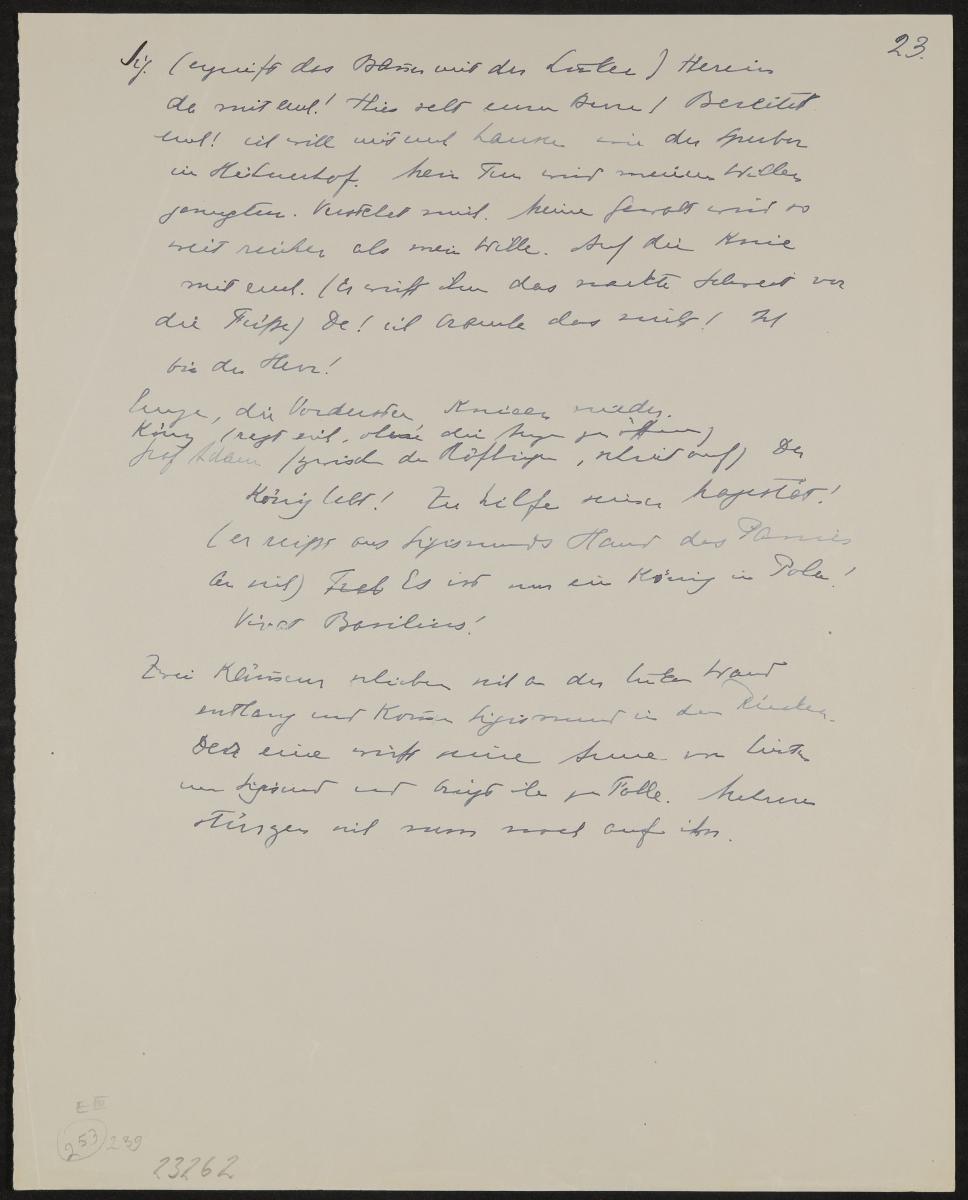 23.
Sig. (ergreift das Banner mit der Linken) Herein
da mit euch! Hier seht euren Herrn! Bereitet
euch! ich will mit euch hausen wie der Sperber
im Hühnerhof. Mein Tun wird meinem Willen
genugtun. Versteht mich. Meine Gewalt wird so
weit reichen als mein Wille. Auf die Knie
mit euch. (Er wirft ihnen das nackte Schwert vor
die Füße) Da! ich brauche das nicht! Ich
bin der Herr!
Einige, die Vordersten knieen nieder.
König (regt sich, ohne die Augen zu öffnen)
Graf Adam (zwischen den Höflingen, schreit auf) Der
König lebt! Zu Hilfe seiner Majestät!
(er reißt aus Sigismunds Hand das Panier
an sich) Es ist nur ein König in Polen!
Vivat Basilius!
Zwei Kämmerer schieben sich an der linken Wand
entlang und kommen Sigismund in den Rücken.
Der eine wirft seine Arme von hinten
um Sigismund und bringt ihn zu Falle. Mehrere
stürzen sich nun noch auf ihn.
E III
253 239
23262